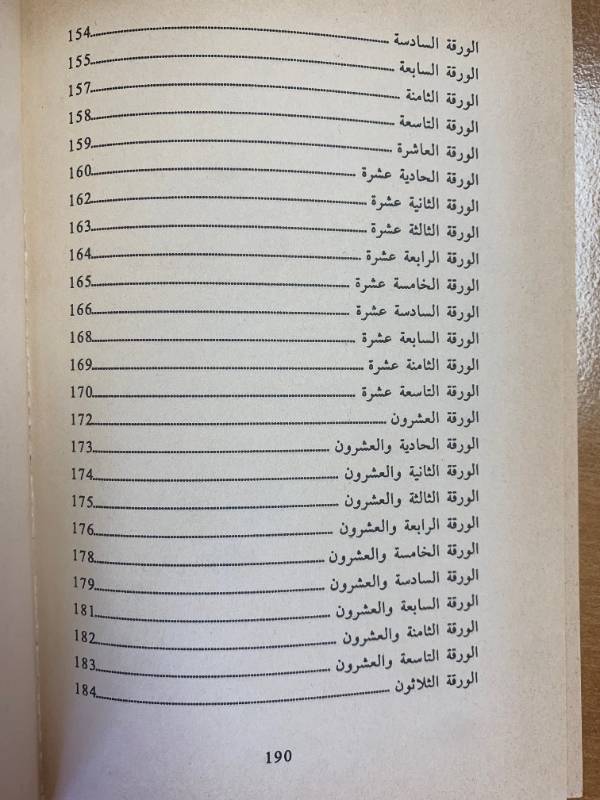 الورقة السادسة ........ 154
الورقة السابعة ........ 155
الورقة الثامنة ........ 157
الورقة التاسعة ........ 158
الورقة العاشرة ........ 159
الورقة الحادية عشرة ........ 160
الورقة الثانية عشرة ........ 162
الورقة الثالثة عشرة ........ 163
الورقة الرابعة عشرة ........ 164
الورقة الخامسة عشرة ........ 165
الورقة السادسة عشرة ........ 166
الورقة السابعة عشرة ........ 168
الورقة الثامنة عشرة ........ 169
الورقة التاسعة عشرة ........ 170
الورقة العشرون ........ 172
الورقة الحادية والعشرون ........ 173
الورقة الثانية والعشرون ........ 174
الورقة الثالثة والعشرون ........ 175
الورقة الرابعة والعشرون ........ 176
الورقة الخامسة والعشرون ........ 178
الورقة السادسة والعشرون ........ 179
الورقة السابعة والعشرون ........ 181
الورقة الثامنة والعشرون ........ 182
الورقة التاسعة والعشرون ........ 183
الورقة الثلاثون ........ 184
190